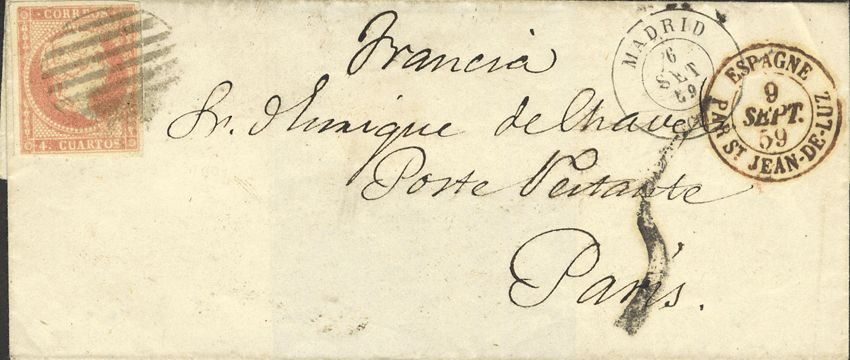 CORREOS
4. CUARTOS
Francia
MADRID
6
SET
59
ESPAGNE
9
SEPT.
59
PAR ST JEAN-DE-LUZ
Sr. Dn Enrique de Chavez
Poste Restante
París.